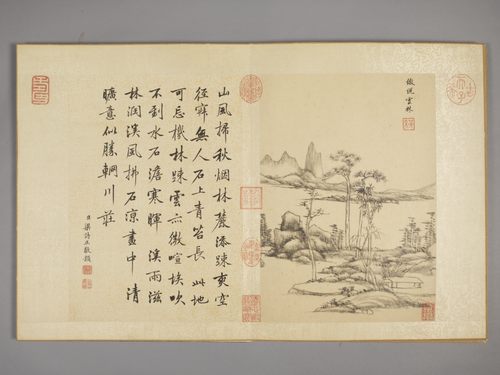 倣倪雲林
山風掃秋烟林麓添踈爽空
徑寂無人石上青苔長 此地
可忘機林踈雲亦微喧埃吹
不到水石澹寒暉 溪雨滋
林潤溪風拂石涼畫中清
曠意似勝輞川莊
臣梁詩正敬題